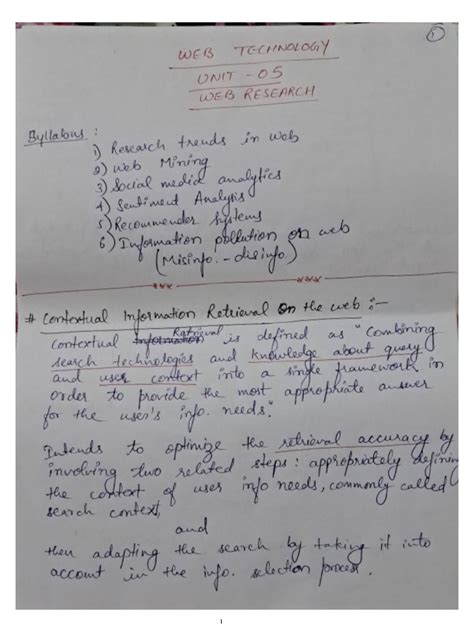 1
WEB TECHNOLOGY
UNIT - 05
WEB RESEARCH
Syllabus :
1) Research trends in web
2) Web Mining
3) Social media analytics
4) Sentiment Analysis
5) Recommender Systems
6) Information pollution on web
(Misinfo. - disinfo)
***
***
# Contextual Information Retrieval On the web :-
Contextual Information Retrieval is defined as "Combining
search technologies and knowledge about query
and user context into a single framework in
order to provide the most appropriate answer
for the user's info. needs."
Intends to optimize the retrieval accuracy by
involving two related steps : appropriately defining
the context of user info needs, commonly called
search context,
and
then adapting the search by taking it into
account in the info. selection process.
1